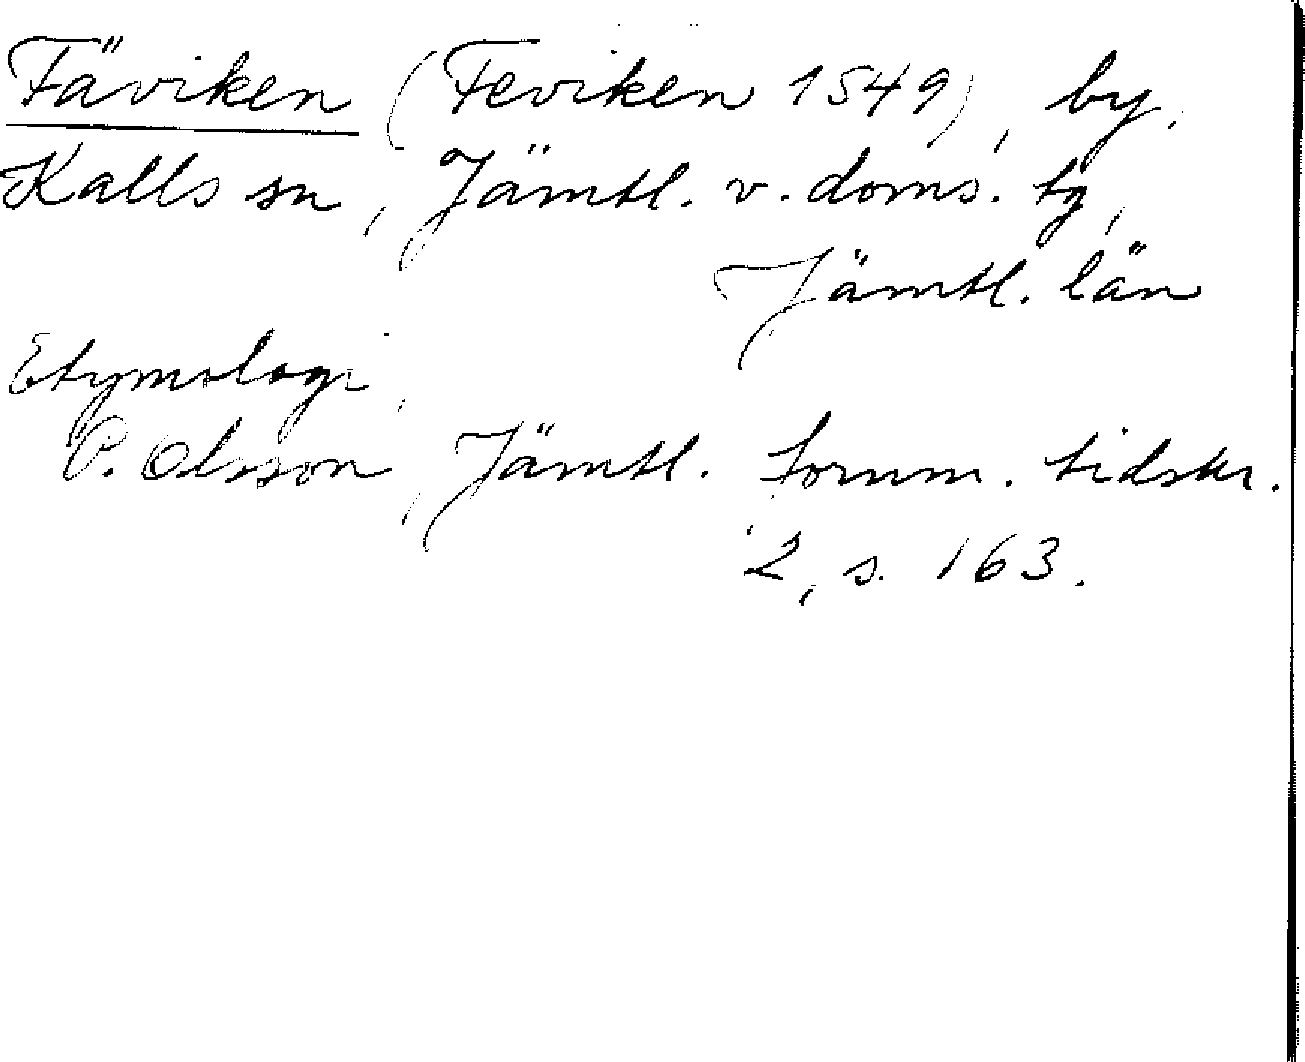 Fäviken (Feviken 1549), by,
Kalls sn, Jämtl. v. doms. tg,
Jämtl. län
Etymologi,
P. Olsson, Jämtl. fornm. tidskr.
2, s. 163.